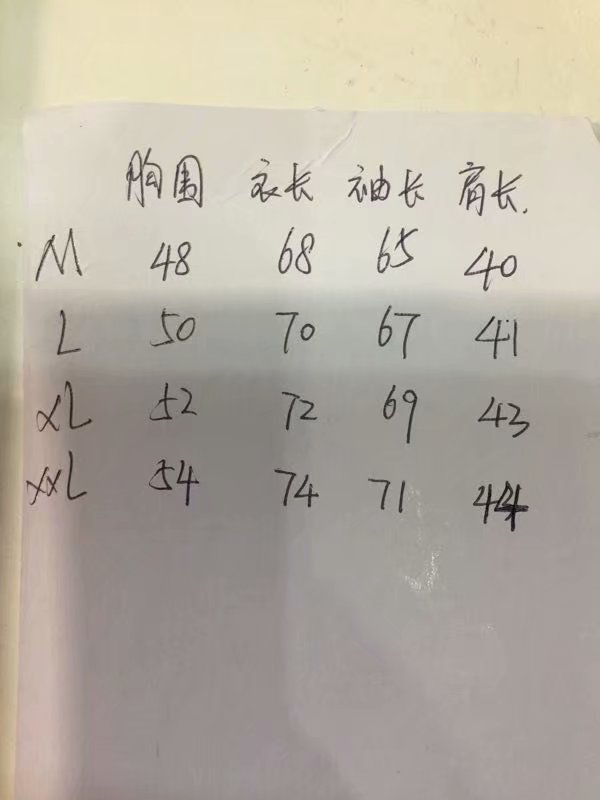 胸围 衣长 袖长 肩长.
M 48 68 65 40
L 50 70 67 41
XL 52 72 69 43
XXL 54 74 71 44